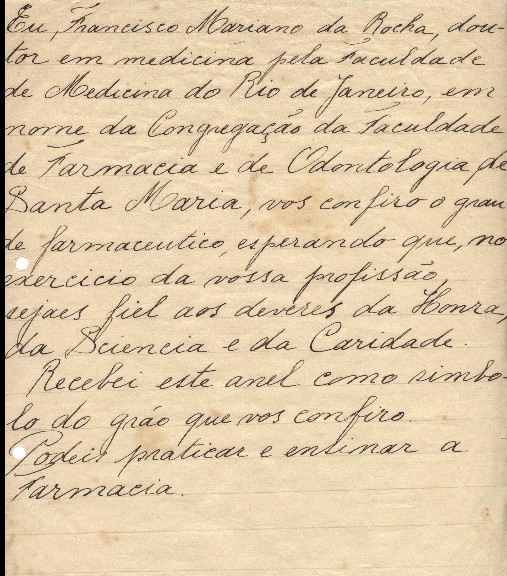 Eu, Francisco Mariano da Rocha, dou-
tor em medicina pela Faculdade
de Medicina do Rio de Janeiro, em
nome da Congregação da Faculdade
de Farmacia e de Odontologia de
Santa Maria, vos confiro o grau
de farmaceutico, esperando que, no
exercicio da vossa profissão,
sejaes fiel aos deveres da Honra,
da Sciencia e da Caridade.
Recebei este anel como simbo-
lo do gráo que vos confiro.
Podeis praticar e ensinar a
Farmacia.